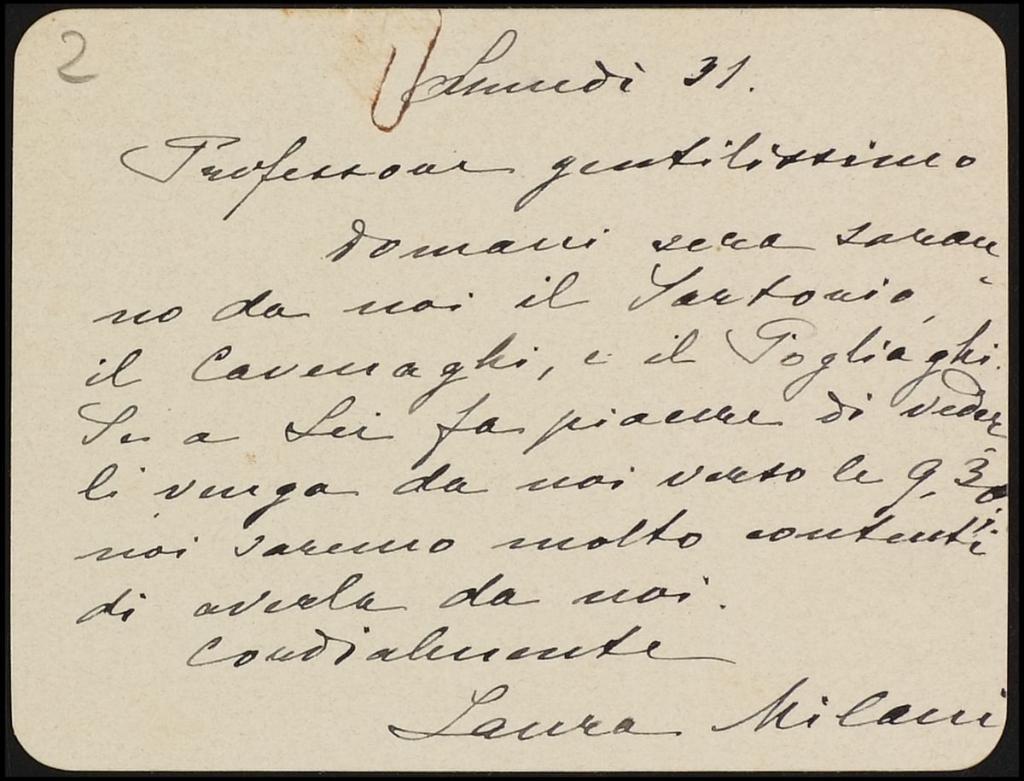 2
Lunedì 31.
Professore gentilissimo
Domani sera saran-
no da noi il Sartorio,
il Cavenaghi, e il Pogliaghi.
Se a Lei fa piacere di veder
li venga da noi verso le 9,30,
noi saremo molto contenti
di averla da noi.
Cordialmente
Laura Milani